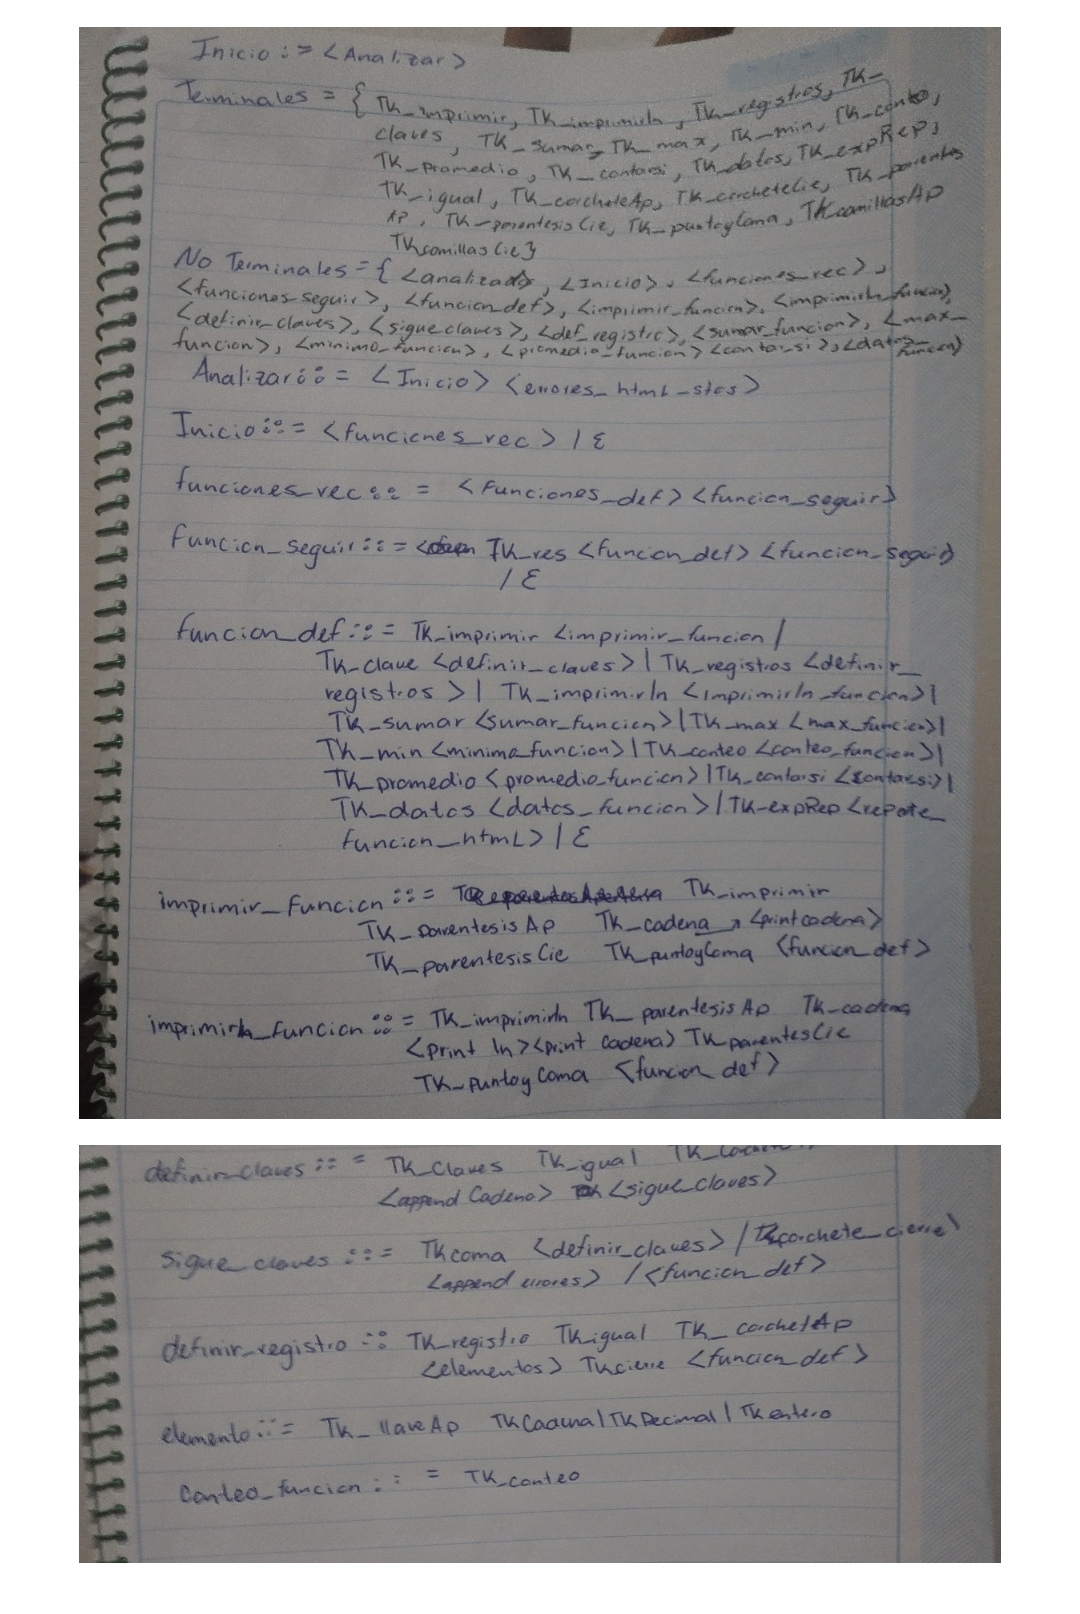 Inicio ::= <Analizar>
Terminales = { TK_imprimir, TK_imprimirln, TK_registros, TK_
claves, TK_sumar, TK_max, TK_min, TK_conteo,
TK_promedio, TK_contarsi, TK_datos, TK_expRep,
TK_igual, TK_corcheteAp, TK_corcheteCie, TK_parentes
Ap, TK_parentesisCie, TK_puntoyComa, TKcomillasAp
TKcomillasCie}
No Terminales = { <analizar>, <Inicio>, <funciones_rec>,
<funciones_seguir>, <funcion_def>, <imprimir_funcion>, <imprimirln_funcion>,
<definir_claves>, <sigue_claves>, <def_registro>, <sumar_funcion>, <max_
funcion>, <minimo_funcion>, <promedio_funcion> <contar_si>, <datos_
funcion>
Analizar ::= <Inicio> <errores_html_stos>
Inicio ::= <funciones_rec> / ε
funciones_rec :: = <Funciones_def> <funcion_seguir>
Funcion_seguir ::= TK_res <funcion_def> <funcion_seguir>
/ ε
funcion_def ::= TK_imprimir <imprimir_funcion /
TK_clave <definir_claves> | TK_registros <definir_
registros > | TK_imprimirln <imprimirln_funcion> |
TK_sumar <sumar_funcion> | TK_max <max_funcion> |
TK_min <minimo_funcion> | TK_conteo <conteo_funcion> |
TK_promedio <promedio_funcion> | TK_contarsi <contarsi> |
TK_datos <datos_funcion> | TK-expRep <repote_
funcion_html> / ε
imprimir_funcion ::= TK_imprimir
TK_parentesisAp TK_cadena → <printcadena>
TK_parentesisCie TK_puntoyComa <funcion_def>
imprimirln_funcion ::= TK_imprimirln TK_parentesisAp TK_cadena
<print ln> <print cadena> TKparentesCie
TK_puntoyComa <funcion_def>
definir_claves :: = TK_Claves TK_igual
<append Cadena> <sigue_claves>
sigue_claves ::= TKcoma <definir_claves> / TKcorchete_cierre
<append errores> / <funcion_def>
definir_registro :: TK_registro TKigual TK_corchetAp
<elementos> TKcierre <funcion_def>
elemento ::= TK_llaveAp TKCadena | TKDecimal | TKentero
Conteo_funcion :: = TK_conteo